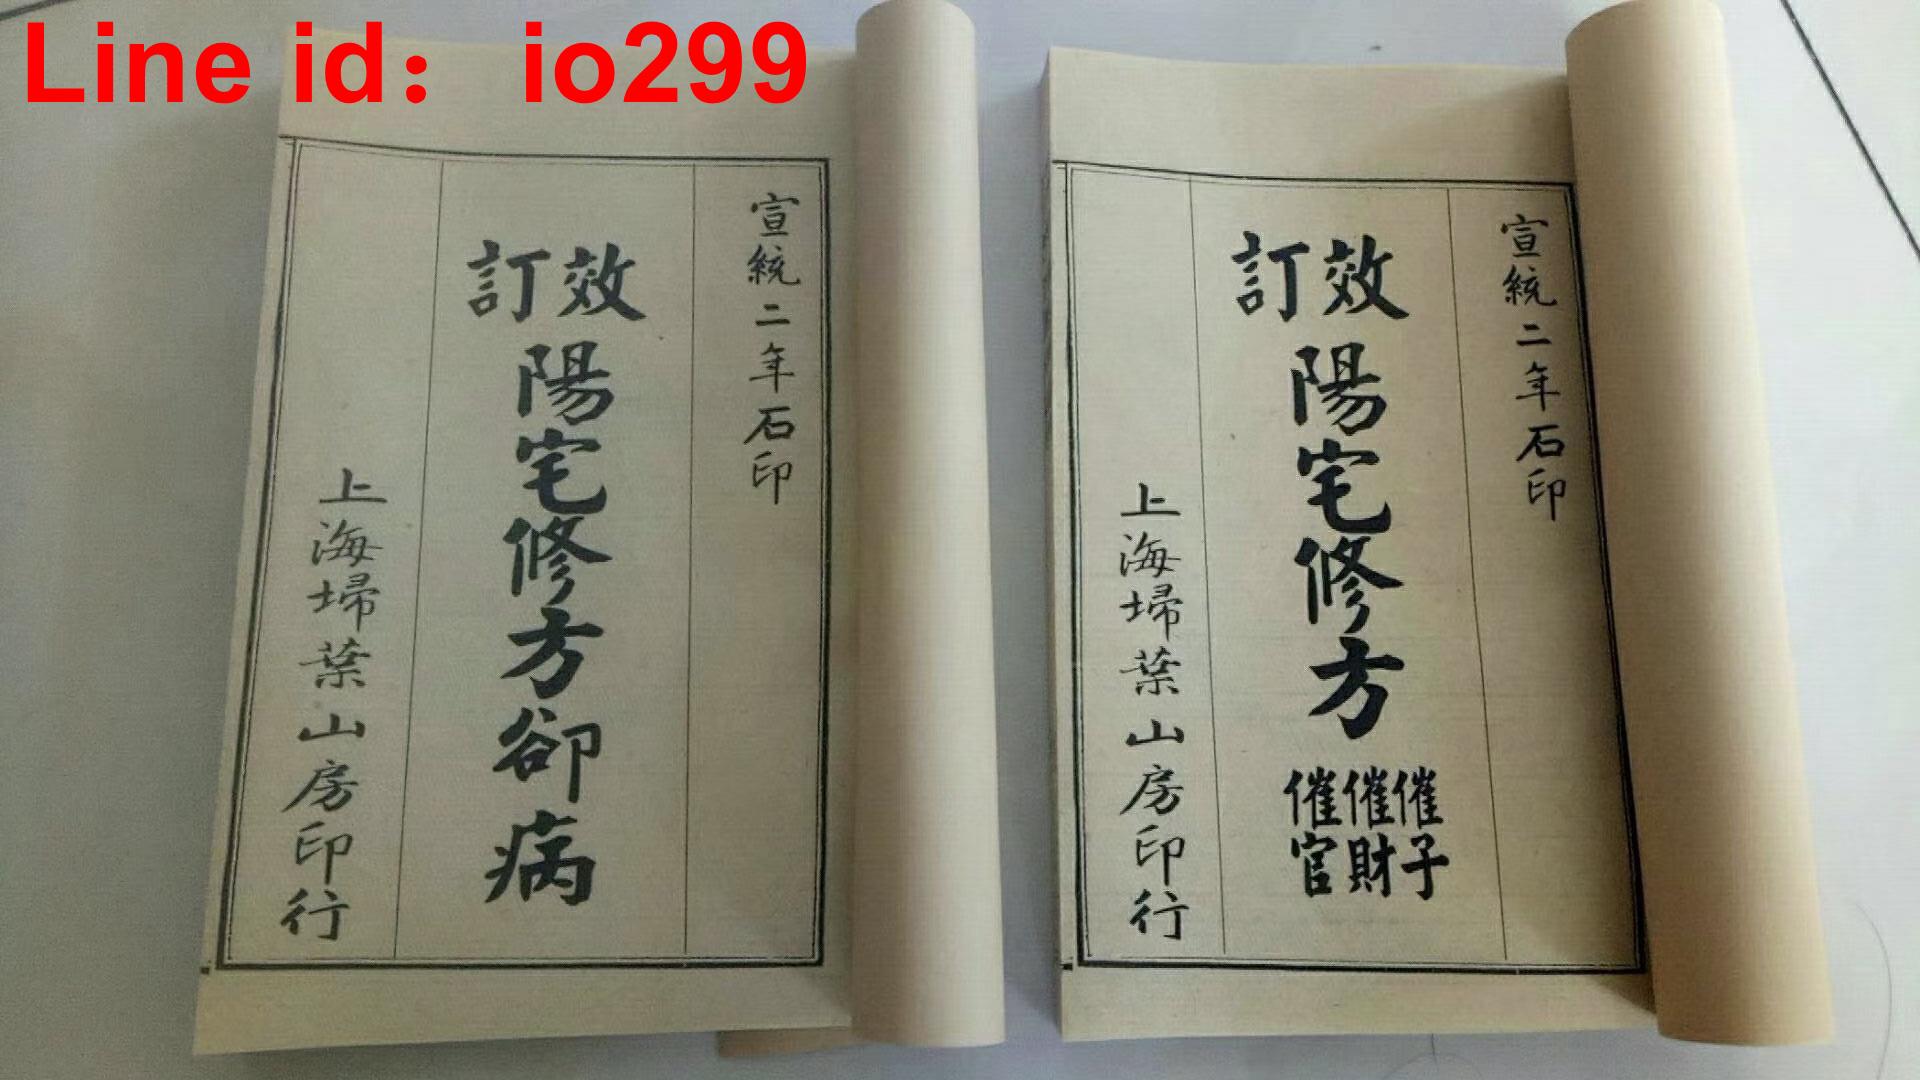 Line id： io299
宣統二年石印
效訂
陽宅修方卻病
上海埽葉山房印行
宣統二年石印
效訂
陽宅修方
催子
催財
催官
上海埽葉山房印行